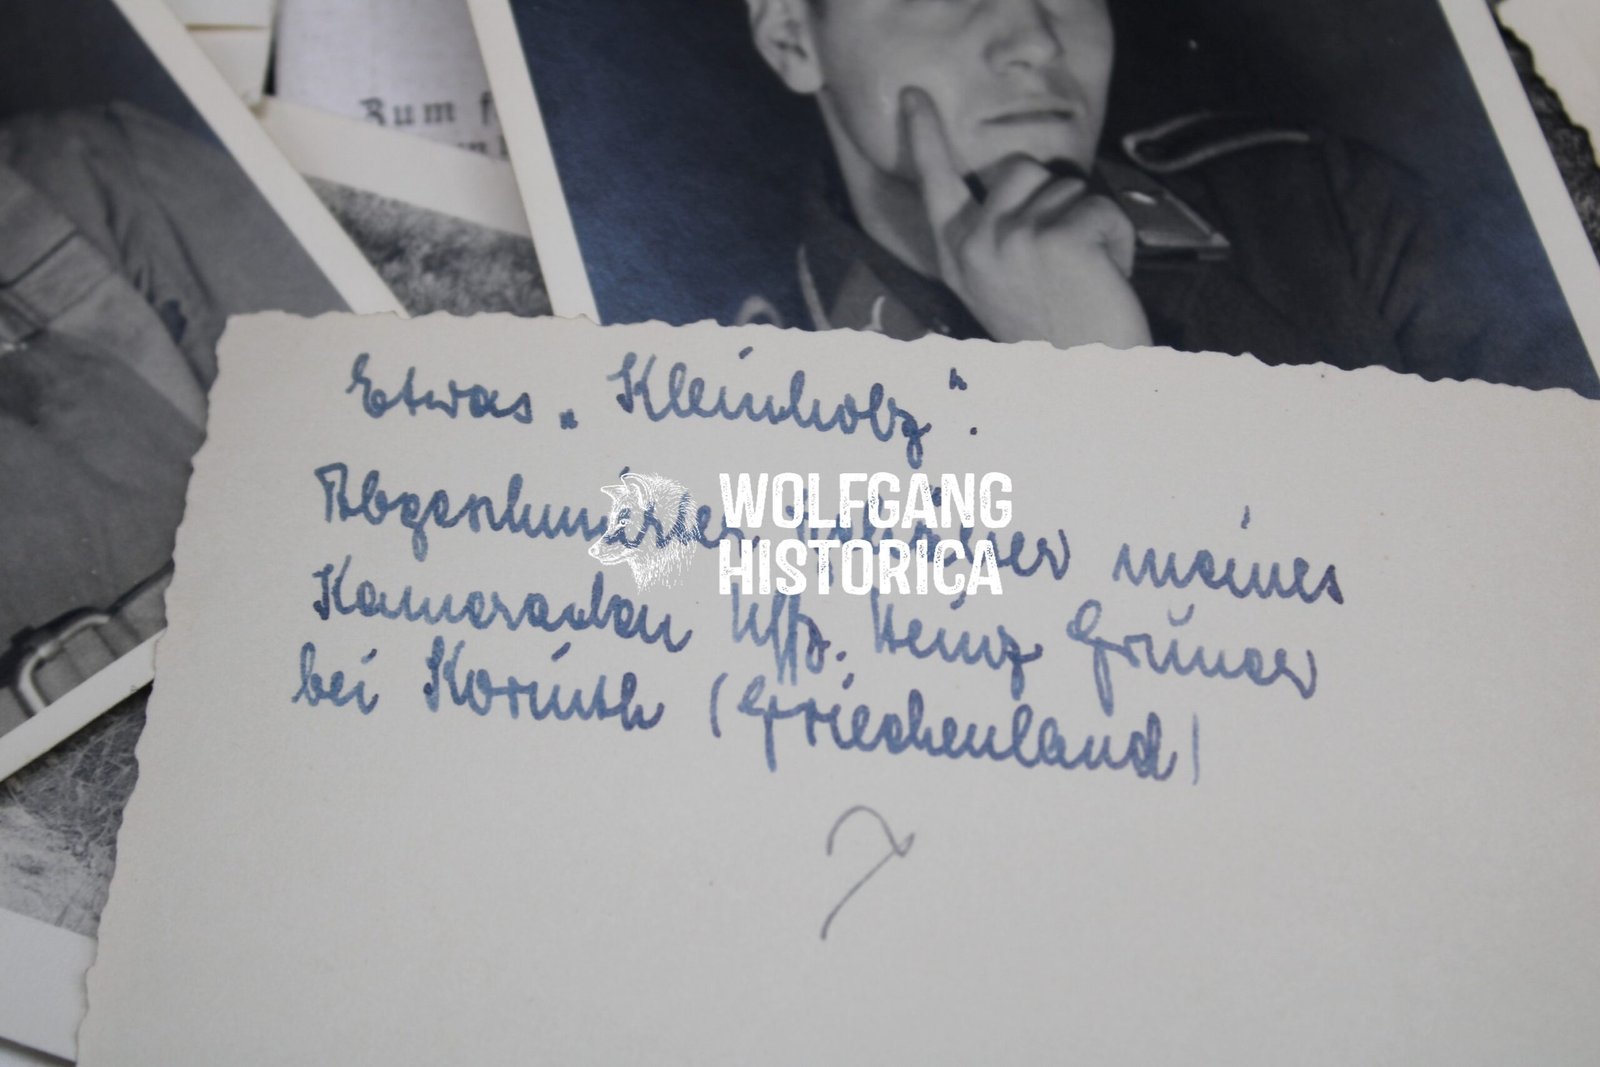 Zum f
Etwas „Kleinholz".
meines
Kameraden Uffz. Heinz Grüner
bei Korinth (Griechenland)
7
WOLFGANG
HISTORICA